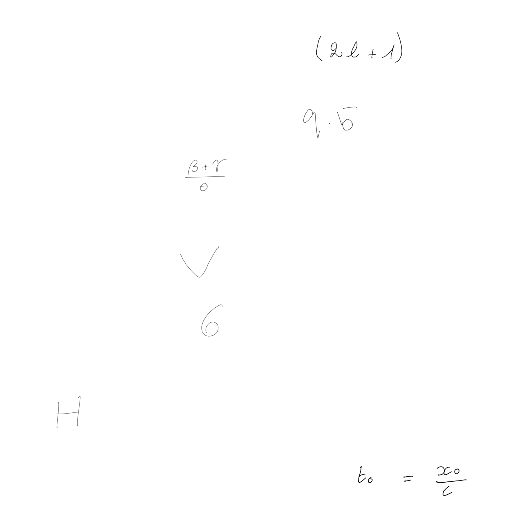 (2l+1)
9.5
β+γ/0
V
6
H
t₀ = x₀/c